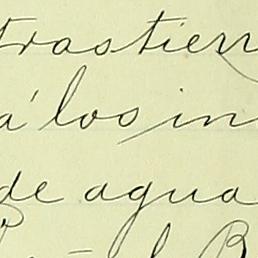 trastierr
á los in
de agua